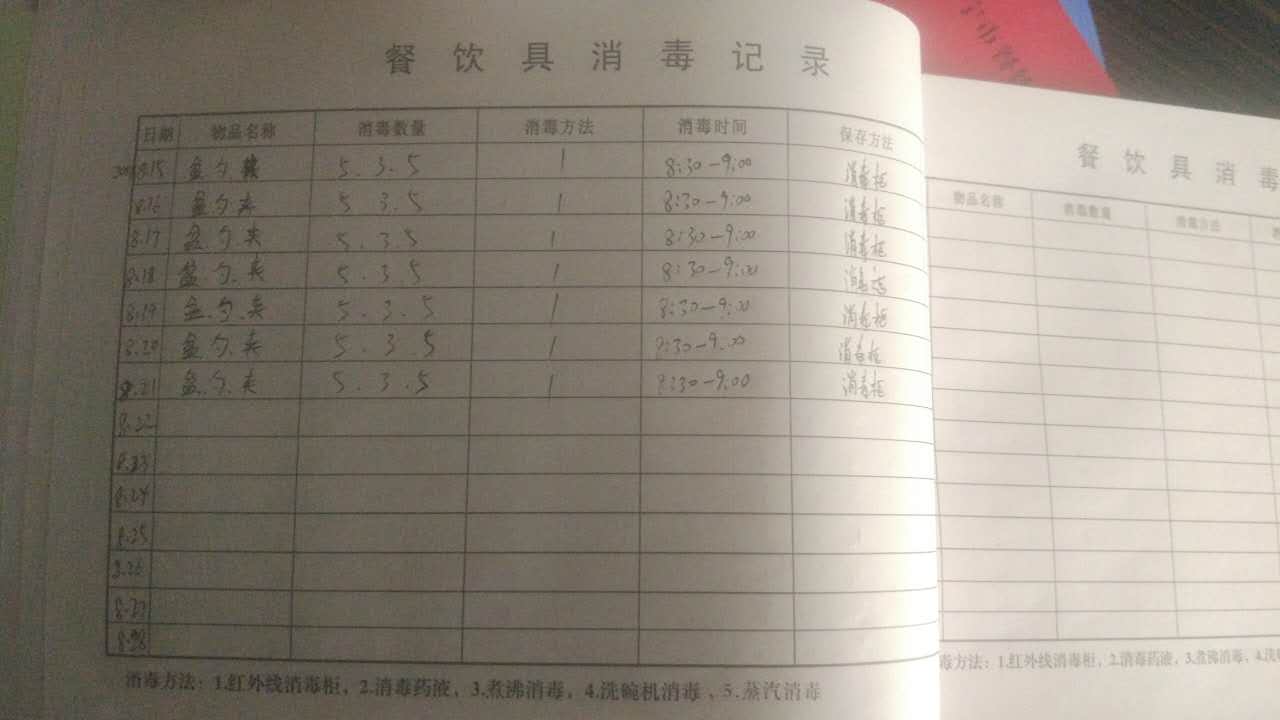 餐饮具消毒记录
日期 物品名称 消毒数量 消毒方法 消毒时间 保存方法
8.15 盆.勺.夹 5.3.5 1 8:30-9:00 消毒柜
8.16 盆.勺.夹 5 3.5 1 8:30-9:00 消毒柜
8.17 盆.勺.夹 5.3.5 1 8:30-9:00 消毒柜
8.18 盆.勺.夹 5.3.5 1 8:30-9:00 消毒
8.19 盆.勺.夹 5.3.5 1 8:30-9:00 消毒柜
8.20 盆.勺.夹 5.3.5 1 8:30-9.00 消毒柜
8.21 盆.勺.夹 5.3.5 1 8:30-9:00 消毒柜
8.22
8.23
8.24
8.25
8.26
8.27
8.28
消毒方法：1.红外线消毒柜，2.消毒药液，3.煮沸消毒，4.洗碗机消毒、5.蒸汽消毒
餐饮具消毒
物品名称 消毒数量 消毒方法
毒方法：1.红外线消毒柜，2.消毒药液，3.煮沸消毒，4.洗